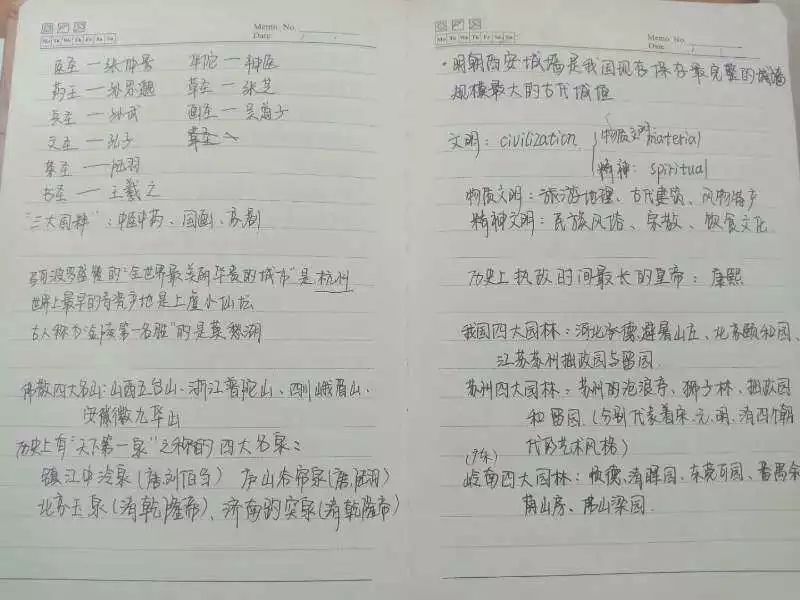 Memo No.
Date
Mo Tu We Th Fr Sa Su
医圣—张仲景 华陀—神医
药王—孙思邈 草圣—张芝
兵圣—孙武 画圣—吴道子
文圣—孔子
茶圣—陆羽
书圣—王羲之
"三大国粹":中医中药、国画、京剧
马可波罗盛赞的"全世界最美丽华贵的城市"是杭州
世界上最早的青瓷产地是上虞小仙坛
古人称为"金陵第一名胜"的是莫愁湖
佛教四大名山:山西五台山、浙江普陀山、四川峨眉山、
安徽九华山
历史上有"天下第一泉"之称的四大名泉:
镇江中泠泉(唐刘伯刍) 庐山谷帘泉(唐陆羽)
北京玉泉(清乾隆帝)、济南趵突泉(清乾隆帝)
Memo No.
Date
Mo Tu We Th Fr Sa Su
·明朝西安城墙是我国现存保存最完整的城墙
规模最大的古代城垣
文明:civilization 物质文明:material
精神:spiritual
物质文明:旅游地理、古代建筑、风物特产
精神文明:民族风俗、宗教、饮食文化
历史上执政时间最长的皇帝:康熙
我国四大园林:河北承德避暑山庄、北京颐和园、
江苏苏州拙政园与留园.
苏州四大园林:苏州的沧浪亭、狮子林、拙政园
和留园.(分别代表着宋.元.明.清四个朝
代的艺术风格)
(广东)
岭南四大园林:顺德清晖园、东莞可园、番禺余
荫山房、佛山梁园.